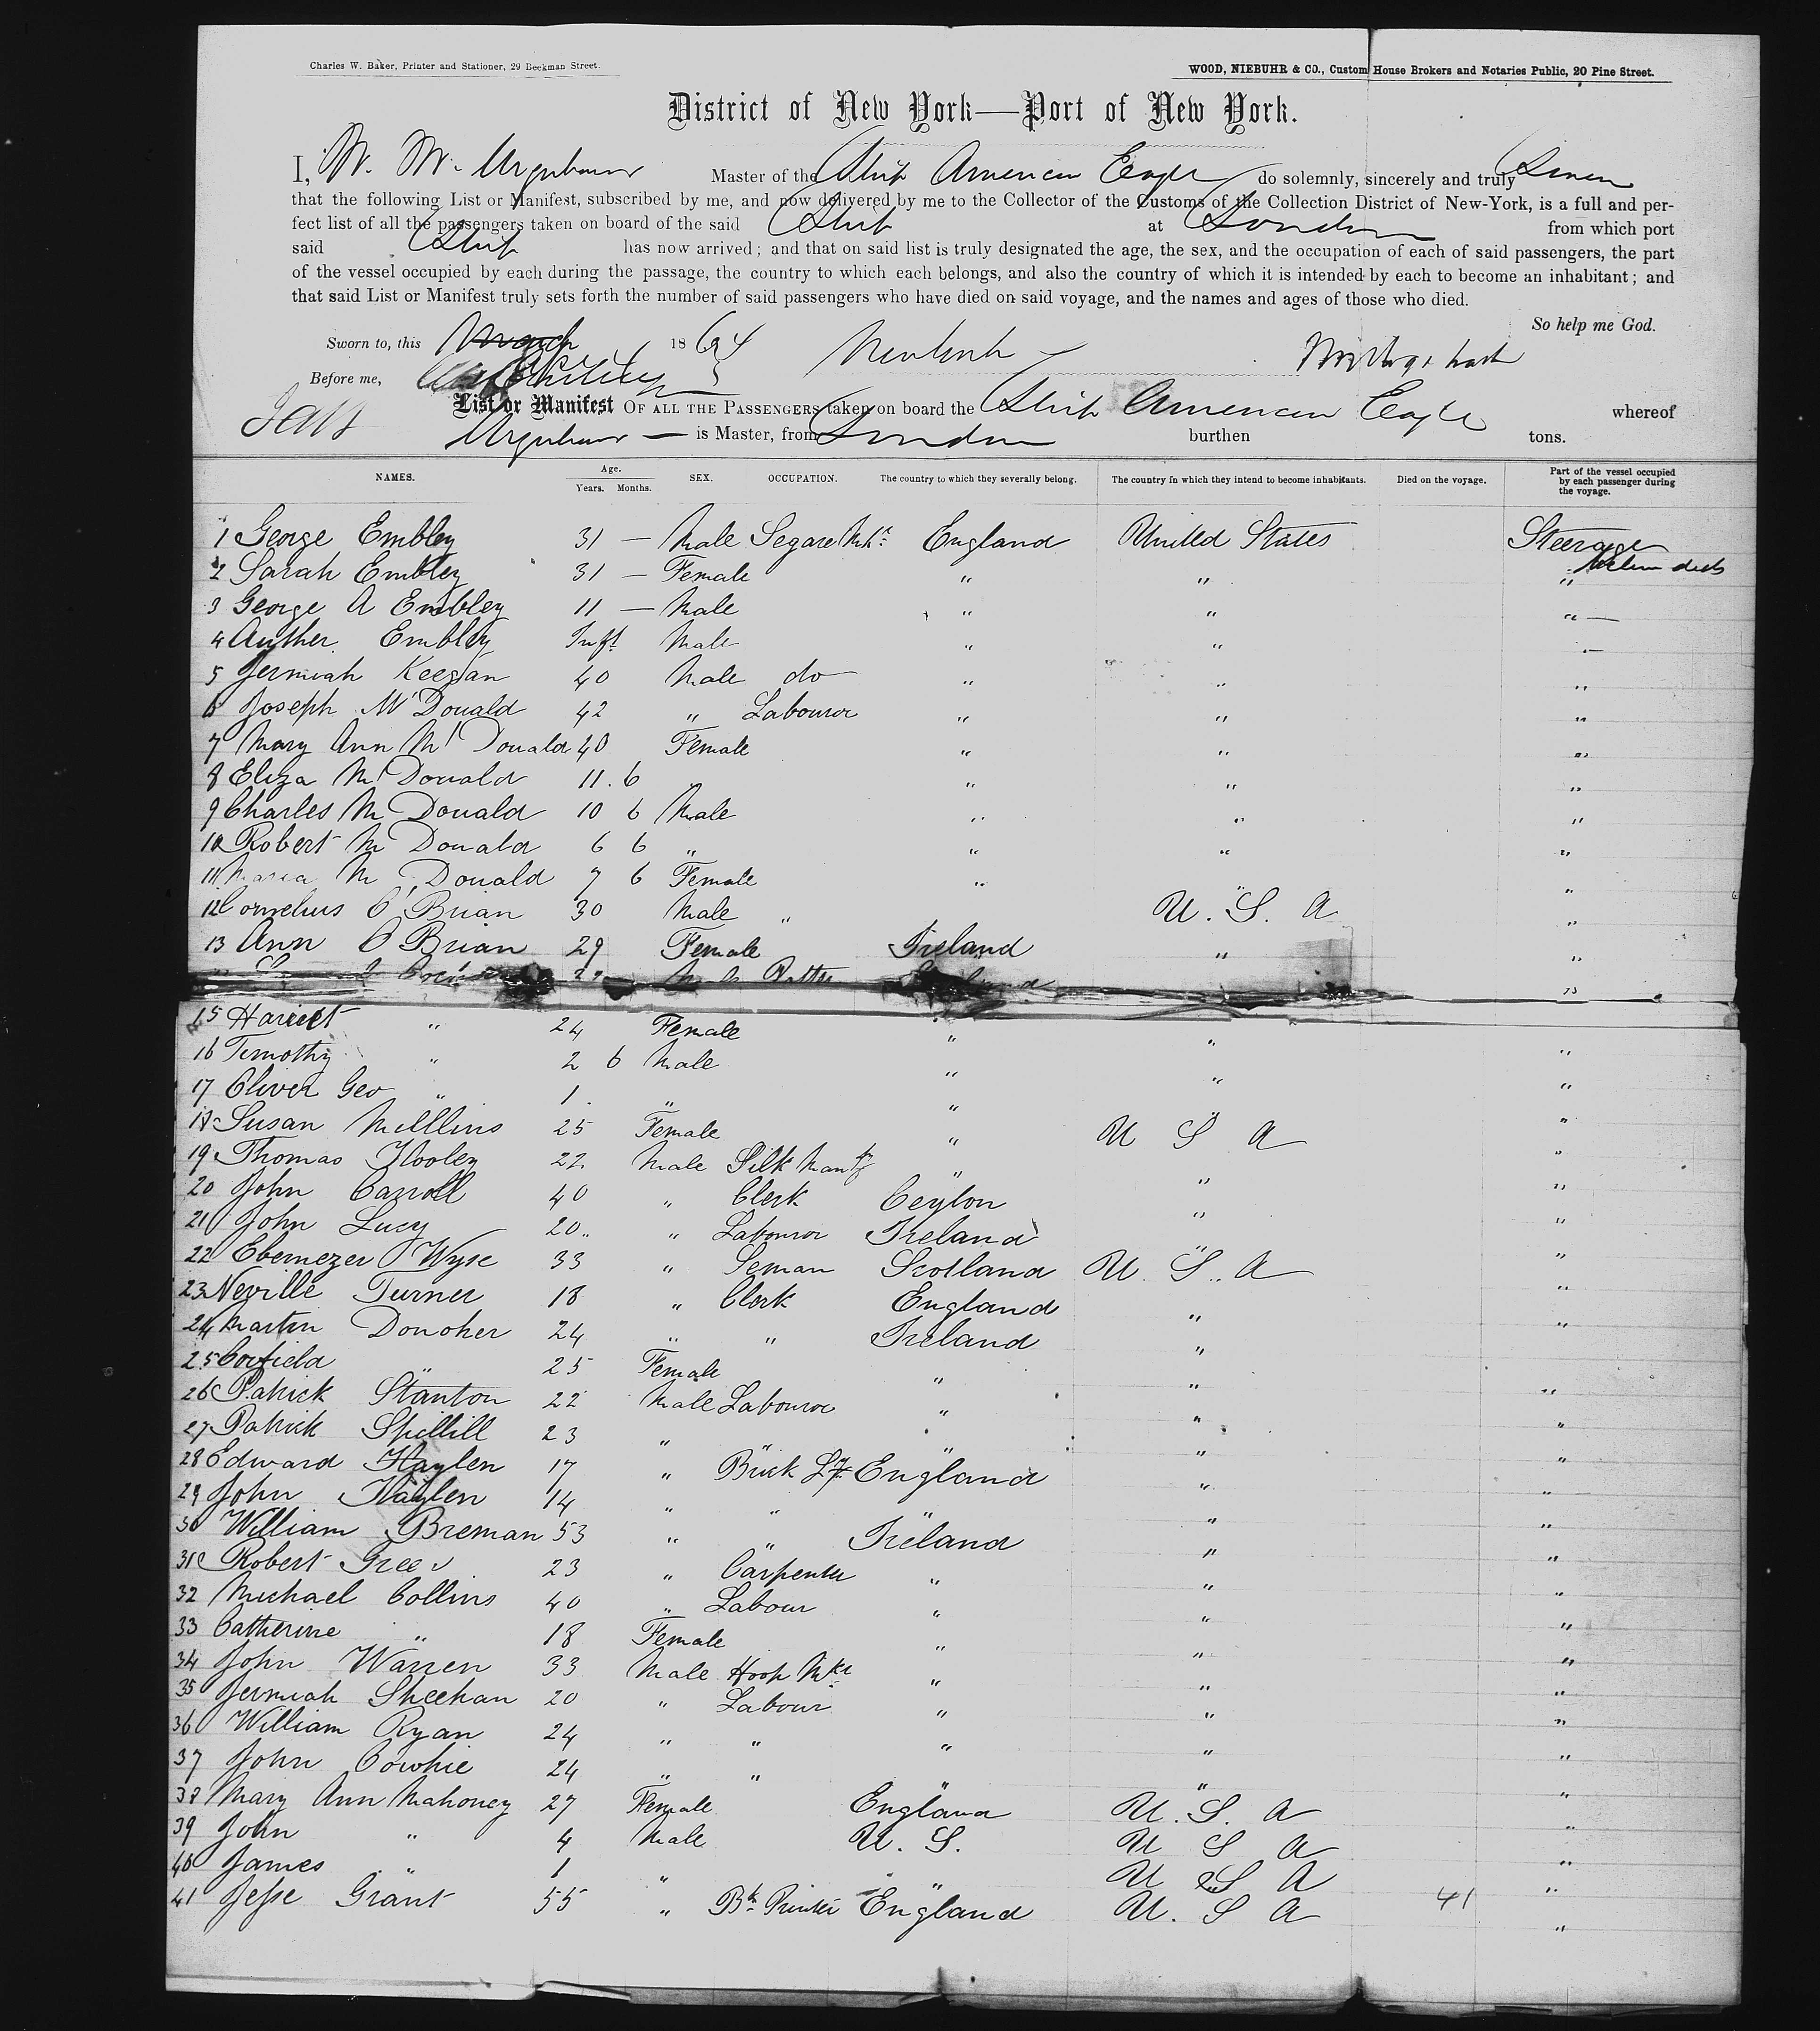 Charles W. Baker, Printer and Stationer, 29 Beekman Street.
WOOD, NIEBUHR & CO., Custom House Brokers and Notaries Public, 20 Pine Street.
District of New York—Port of New York.
I, W. M. Master of the Ship American Eagle do solemnly, sincerely and truly Swear
that the following List or Manifest, subscribed by me, and now delivered by me to the Collector of the Customs of the Collection District of New-York, is a full and per-
fect list of all the passengers taken on board of the said Ship at London from which port
said Ship has now arrived; and that on said list is truly designated the age, the sex, and the occupation of each of said passengers, the part
of the vessel occupied by each during the passage, the country to which each belongs, and also the country of which it is intended by each to become an inhabitant; and
that said List or Manifest truly sets forth the number of said passengers who have died on said voyage, and the names and ages of those who died.
So help me God.
Sworn to, this 1864
Before me,
List or Manifest OF ALL THE PASSENGERS taken on board the Ship American Eagle whereof
is Master, from London burthen tons.
NAMES. Age. Years. Months. SEX. OCCUPATION. The country to which they severally belong. The country in which they intend to become inhabitants. Died on the voyage. Part of the vessel occupied by each passenger during the voyage.
1 George Embley 31 — Male Segare Mkr England United States Steerage
2 Sarah Embley 31 — Female " " "
3 George A Embley 11 — Male " " " —
4 Auther Embley Inft Male " " "
5 Jermiah Keegan 40 Male do " " "
6 Joseph McDonald 42 " Labourer " " "
7 Mary Ann McDonald 40 Female " " "
8 Eliza McDonald 11. 6 " " " "
9 Charles McDonald 10 6 Male " " "
10 Robert McDonald 6 6 " " " "
11 Maria McDonald 7 6 Female " " "
12 Cornelius O'Brian 30 Male " U. S. A "
13 Ann O'Brian 29 Female Ireland " "
15 Harriet " 24 Female " " "
16 Timothy " 2 6 Male " " "
17 Oliver Geo " 1. " " " "
18 Susan Mullins 25 Female " U S A "
19 Thomas Hooley 22 Male Silk " " "
20 John Carroll 40 " Clerk Ceylon " "
21 John Lucy 20 " Labourer Ireland " "
22 Ebernezer Wyse 33 " Seman Scotland U. S. A "
23 Neville Turner 18 " Clerk England " "
24 Martin Donoher 24 " " Ireland " "
25 " 25 Female " " "
26 Patrick Stanton 22 Male Labourer " " "
27 Patrick 23 " " " " "
28 Edward Haylen 17 " England " "
29 John Haylen 14 " " " " "
30 William Breman 53 " " Ireland " "
31 Robert 23 " Carpenter " " "
32 Michael Collins 40 " Labour " " "
33 Catherine " 18 Female " " "
34 John Warren 33 Male Hoop Mkr " " "
35 Jermiah Sheehan 20 " Labour " " "
36 William Ryan 24 " " " " "
37 John Cowhie 24 " " " " "
38 Mary Ann Mahoney 27 Female England U. S. A "
39 John " 4 Male U. S. U S A "
40 James " 1 " " U S A "
41 Jesse Grant 55 " England U. S A 41 "